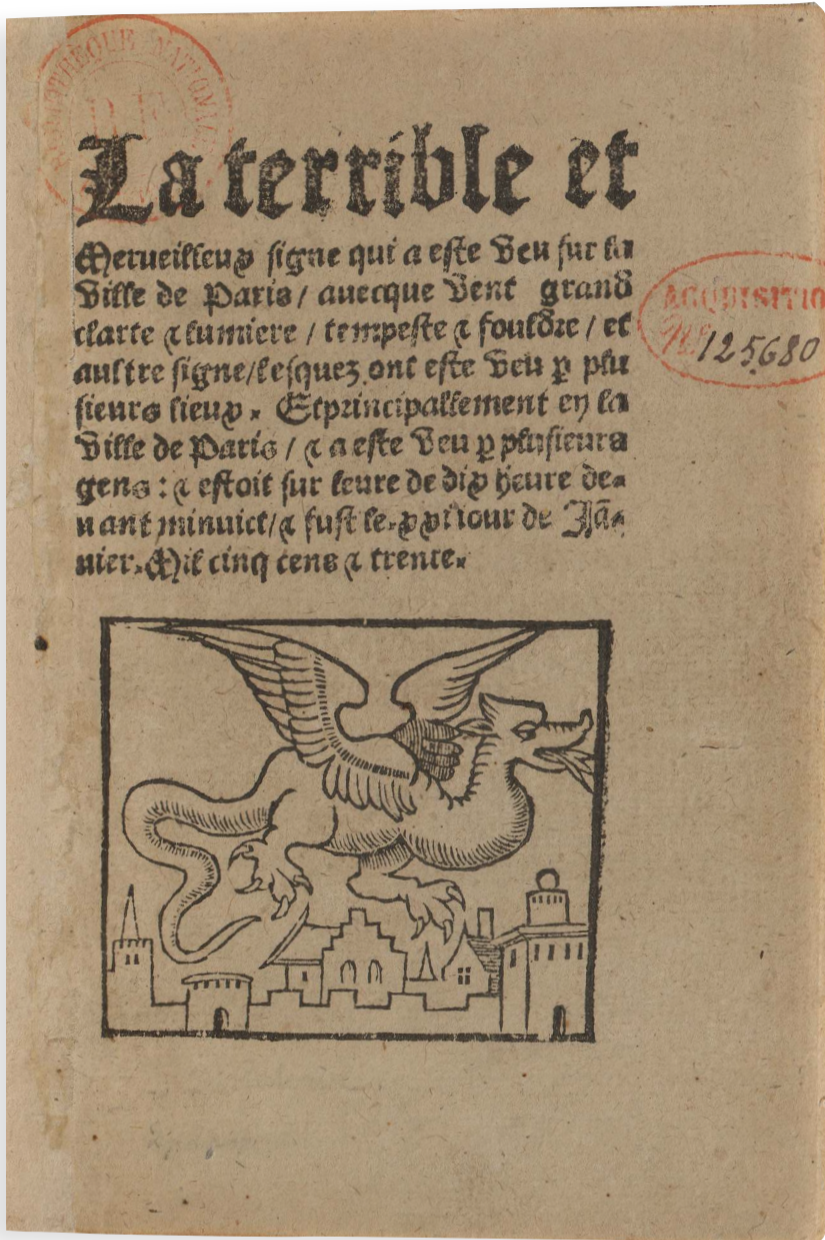 BIBLIOTHEQUE NATIONALE
La terrible et
Merueilleux signe qui a este veu sur la
ville de Paris / auecque vent grand
clarte ⁊ lumiere / tempeste ⁊ fouldre / et
aultre signe / lesquez ont este veu ꝑ plu
sieurs lieux. Et principallement en la
ville de Paris / ⁊ a este veu ꝑ plusieurs
gens : ⁊ estoit sur leure de dix heure de-
uant minuict / ⁊ fust le. xxi iour de Jã-
uier. Mil cinq cens ⁊ trente.
ACQUISITIO
No 125680